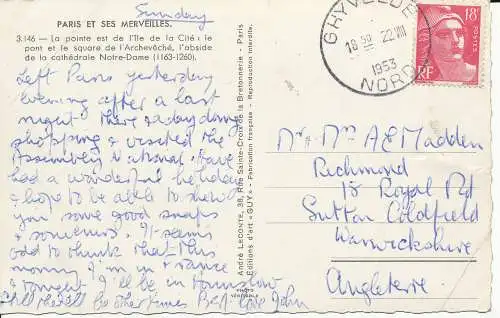 Sunday
PARIS ET SES MERVEILLES.
3.146 — La pointe est de l'Ile de la Cité : le
pont et le square de l'Archevêché, l'abside
de la cathédrale Notre-Dame (1163-1260).
Left Paris yesterday
evening after a last
night there & a day doing
shopping & visited the
Assembly National. Have
had a wonderful holiday
& hope to be able to show
you some good snaps
& souvenirs. It seems
odd to think that this
morning I'm in France
& tonight I'll be in Hounslow
Still there'll be other times Best love John
André LECONTE, 38, Rue Sainte-Croix de la Bretonnerie - Paris
Éditions d'art "GUY" - Fabrication française - Reproduction interdite.
PHOTO
VÉRITABLE
GHYVELDE
18 22 VIII
1953
NORD
18F
POSTES
RF
Mr. Mrs A E Madden
Richmond
18 Royal Rd
Sutton Coldfield
Warwickshire
Angleterre